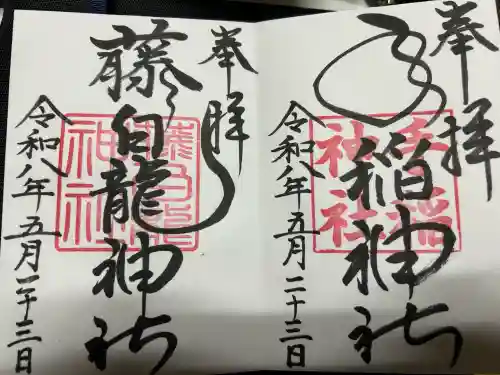 奉拝
稲神社
令和八年五月二十三日
神社
奉拝
藤白龍神社
令和八年五月二十三日
神社